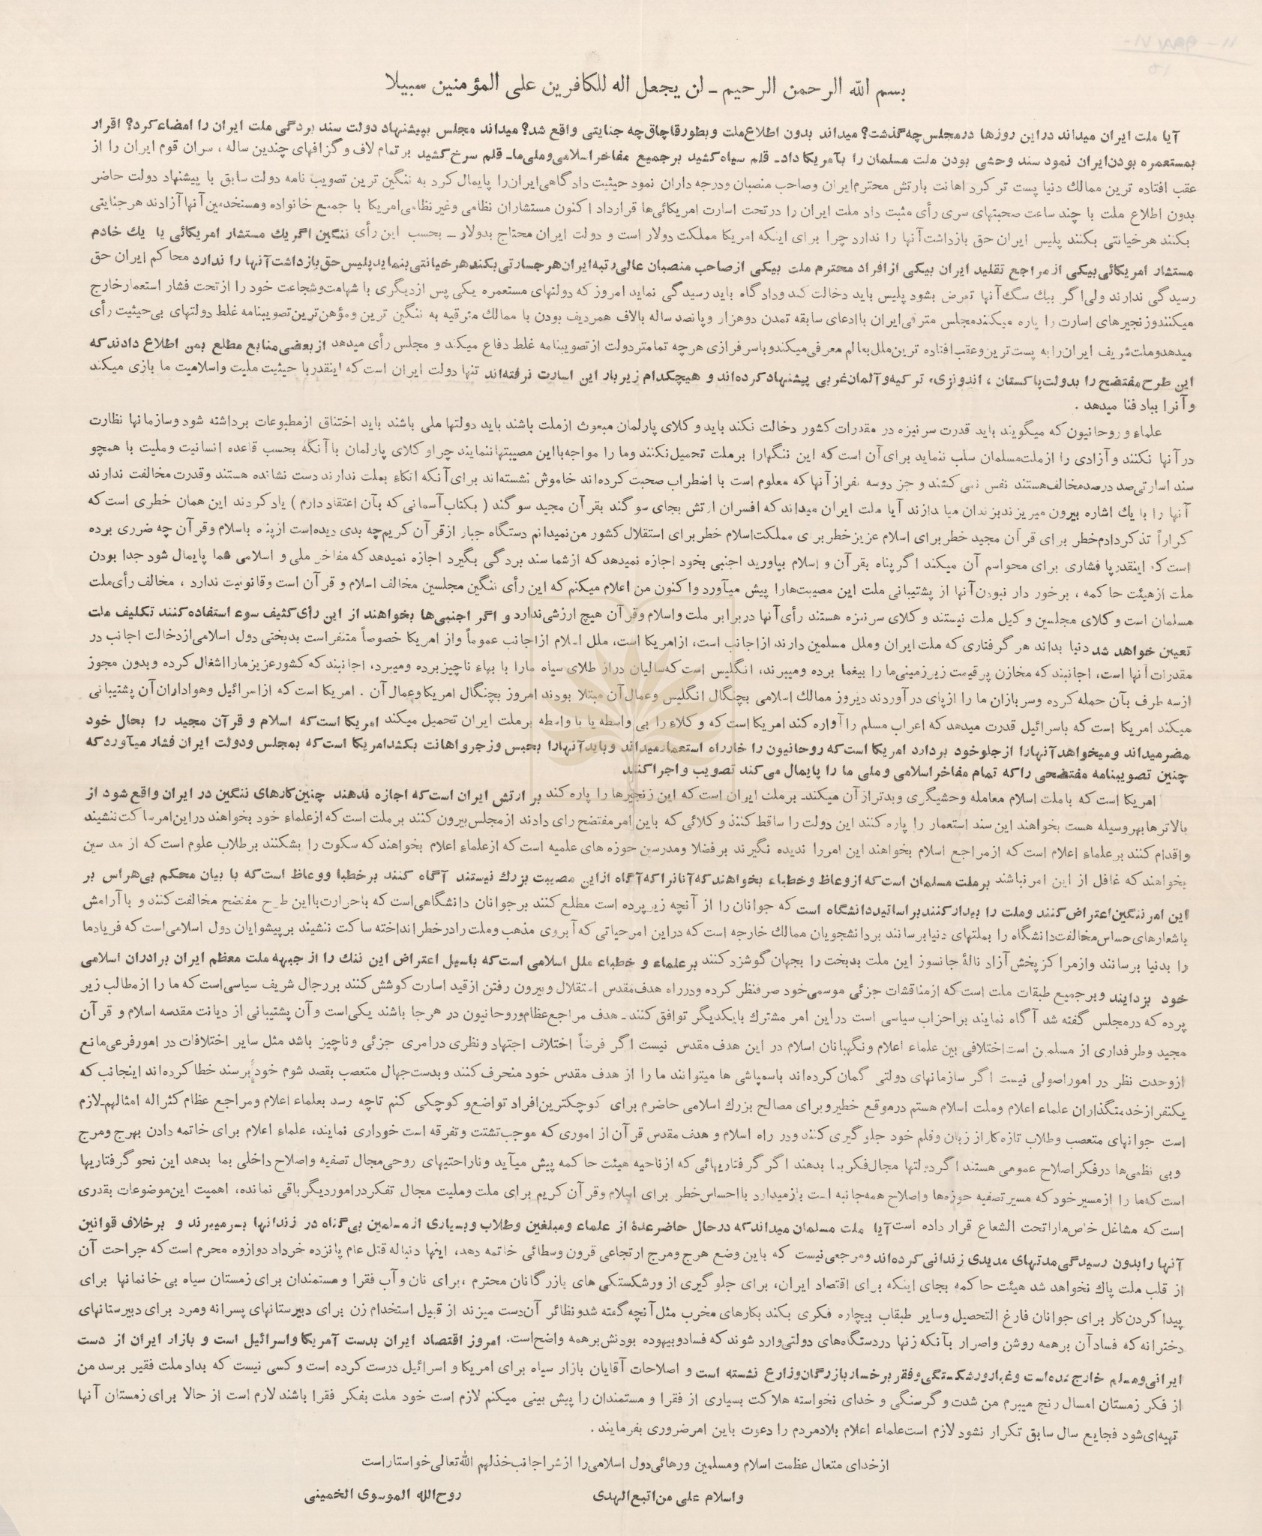 بسم الله الرحمن الرحیم ـ لن یجعل اله للکافرین علی المؤمنین سبیلا
آیا ملت ایران میداند در این روزها در مجلس چه گذشت؟ میداند بدون اطلاع ملت و بطور قاچاق چه جنایتی واقع شد؟ میداند مجلس بپیشنهاد دولت سند بردگی ملت ایران را امضاء کرد؟ اقرار
بمستعمره بودن ایران نمود سند وحشی بودن ملت مسلمان را بآمریکا داد ـ قلم سیاه کشید بر جمیع مفاخر اسلامی و ملی ما ـ قلم سرخ کشید بر تمام لاف و گزافهای چندین ساله ، سران قوم ایران را از
عقب افتاده ترین ممالک دنیا پست تر کرد اهانت بارتش محترم ایران و صاحب منصبان و درجه داران نمود حیثیت دادگاهی ایران را پایمال کرد به ننگین ترین تصویب نامه دولت سابق با پیشنهاد دولت حاضر
بدون اطلاع ملت با چند ساعت صحبتهای سری رأی مثبت داد ملت ایران را در تحت اسارت امریکائی‌ها قرارداد اکنون مستشاران نظامی و غیر نظامی امریکا با جمیع خانواده و مستخدمین آنها آزادند هر جنایتی
بکنند هر خیانتی بکنند پلیس ایران حق بازداشت آنها را ندارد چرا برای اینکه امریکا مملکت دولار است و دولت ایران محتاج بدولار ـ بحسب این رأی ننگین اگر یک مستشار امریکائی یا یک خادم
مستشار امریکائی بیکی از مراجع تقلید ایران بیکی از افراد محترم ملت بیکی از صاحب منصبان عالی رتبه ایران هر جسارتی بکند هر خیانتی بنماید پلیس حق بازداشت آنها را ندارد محاکم ایران حق
رسیدگی ندارند ولی اگر بیک سگ آنها تعرض بشود پلیس باید دخالت کند و دادگاه باید رسیدگی نماید امروز که دولتهای مستعمره یکی پس از دیگری با شهامت و شجاعت خود را از تحت فشار استعمار خارج
میکنند و زنجیرهای اسارت را پاره میکنند مجلس مترقی ایران با ادعای سابقه تمدن دو هزار و پانصد ساله با لاف همردیف بودن با ممالک مترقیه به ننگین ترین و مؤهن ترین تصویبنامه غلط دولتهای بی حیثیت رأی
میدهد و ملت شریف ایران را به پست ترین و عقب افتاده ترین ملل بعالم معرفی میکند و با سرفرازی هر چه تمامتر دولت از تصویبنامه غلط دفاع میکند و مجلس رأی میدهد از بعضی منابع مطلع بمن اطلاع دادند که
این طرح مفتضح را بدولت پاکستان ، اندونزی، ترکیه و آلمان غربی پیشنهاد کرده‌اند و هیچکدام زیر بار این اسارت نرفته‌اند تنها دولت ایران است که اینقدر با حیثیت ملیت و اسلامیت ما بازی میکند
و آنرا بباد فنا میدهد .
علماء و روحانیون که میگویند باید قدرت سر نیزه در مقدرات کشور دخالت نکند باید وکلای پارلمان مبعوث از ملت باشند باید دولتها ملی باشند باید اختناق از مطبوعات برداشته شود و سازمانها نظارت
در آنها نکنند و آزادی را از ملت مسلمان سلب ننماید برای آن است که این ننگها را بر ملت تحمیل نکنند و ما را مواجه با این مصیبتها ننمایند چرا وکلای پارلمان با آنکه بحسب قاعده انسانیت و ملیت با همچو
سند اسارتی صد در صد مخالف هستند نفس نمی کشند و جز دو سه نفر از آنها که معلوم است با اضطراب صحبت کرده‌اند خاموش نشسته‌اند برای آنکه اتکاء بملت ندارند دست نشانده هستند و قدرت مخالفت ندارند
آنها را با یک اشاره بیرون میریزند بزندان میاندازند آیا ملت ایران میداند که افسران ارتش بجای سوگند بقرآن مجید سوگند ( بکتاب آسمانی که بآن اعتقاد دارم ) یاد کردند این همان خطری است که
کراراً تذکر دادم خطر برای قرآن مجید خطر برای اسلام عزیز خطر برای مملکت اسلام خطر برای استقلال کشور من نمیدانم دستگاه جبار از قرآن کریم چه بدی دیده است از پناه باسلام و قرآن چه ضرری برده
است که اینقدر پا فشاری برای محو اسم آن میکند اگر پناه بقرآن و اسلام بیاورید اجنبی بخود اجازه نمیدهد که از شما سند بردگی بگیرد اجازه نمیدهد که مفاخر ملی و اسلامی شما پایمال شود جدا بودن
ملت از هیئت حاکمه ، برخوردار نبودن آنها از پشتیبانی ملت این مصیبت‌ها را پیش میآورد و اکنون من اعلام میکنم که این رأی ننگین مجلسین مخالف اسلام و قرآن است و قانونیت ندارد ، مخالف رأی ملت
مسلمان است وکلای مجلسین وکیل ملت نیستند وکلای سر نیزه هستند رأی آنها در برابر ملت و اسلام و قرآن هیچ ارزشی ندارد و اگر اجنبی‌ها بخواهند از این رأی کثیف سوء استفاده کنند تکلیف ملت
تعیین خواهد شد دنیا بداند هر گرفتاری که ملت ایران و ملل مسلمین دارند از اجانب است، از امریکا است، ملل اسلام از اجانب عموماً و از امریکا خصوصاً متنفر است بدبختی دول اسلامی از دخالت اجانب در
مقدرات آنها است، اجانبند که مخازن پر قیمت زیر زمینی ما را بیغما برده و میبرند، انگلیس است که سالیان دراز طلای سیاه ما را با بهاء ناچیز برده و میبرد، اجانبند که کشور عزیز ما را اشغال کرده و بدون مجوز
از سه طرف بآن حمله کرده و سربازان ما را از پای در آوردند دیروز ممالک اسلامی بچنگال انگلیس و عمال آن مبتلا بودند امروز بچنگال امریکا و عمال آن . امریکا است که از اسرائیل و هواداران آن پشتیبانی
میکند امریکا است که باسرائیل قدرت میدهد که اعراب مسلم را آواره کند امریکا است که وکلاء را بی واسطه یا با واسطه بر ملت ایران تحمیل میکند امریکا است که اسلام و قرآن مجید را بحال خود
مضر میداند و میخواهد آنها را از جلو خود بردارد امریکا است که روحانیون را خار راه استعمار میداند و باید آنها را بحبس و زجر و اهانت بکشد امریکا است که بمجلس و دولت ایران فشار میآورد که
چنین تصویبنامه مفتضحی را که تمام مفاخر اسلامی و ملی ما را پایمال می کند تصویب و اجرا کنند
امریکا است که با ملت اسلام معامله وحشیگری و بدتر از آن میکند ـ بر ملت ایران است که این زنجیرها را پاره کند بر ارتش ایران است که اجازه ندهند چنین کارهای ننگین در ایران واقع شود از
بالاترها بهر وسیله هست بخواهند این سند استعمار را پاره کنند این دولت را ساقط کنند وکلائی که باین امر مفتضح رای دادند از مجلس بیرون کنند بر ملت است که از علماء خود بخواهند در این امر ساکت ننشینند
و اقدام کنند بر علماء اعلام است که از مراجع اسلام بخواهند این امر را ندیده نگیرند بر فضلا و مدرسین حوزه های علمیه است که از علماء اعلام بخواهند که سکوت را بشکنند بر طلاب علوم است که از مدرسین
بخواهند که غافل از این امر نباشند بر ملت مسلمان است که از وعاظ و خطباء بخواهند که آنانرا که آگاه از این مصیبت بزرگ نیستند آگاه کنند بر خطبا و وعاظ است که با بیان محکم بی هراس بر
این امر ننگین اعتراض کنند و ملت را بیدار کنند بر اساتید دانشگاه است که جوانان را از آنچه زیر پرده است مطلع کنند بر جوانان دانشگاهی است که با حرارت با این طرح مفتضح مخالفت کنند و با آرامش
با شعارهای حساس مخالفت دانشگاه را بملتهای دنیا برسانند بر دانشجویان ممالک خارجه است که در این امر حیاتی که آبروی مذهب و ملت را در خطر انداخته ساکت ننشیند بر پیشوایان دول اسلامی است که فریاد ما
را بدنیا برسانند و از مراکز پخش آزاد نالهٔ جانسوز این ملت بدبخت را بجهان گوشزد کنند بر علماء و خطباء ملل اسلامی است که با سیل اعتراض این ننگ را از جبهه ملت معظم ایران برادران اسلامی
خود بزدایند و بر جمیع طبقات ملت است که از مناقشات جزئی موسمی خود صرفنظر کرده و در راه هدف مقدس استقلال و بیرون رفتن از قید اسارت کوشش کنند بر رجال شریف سیاسی است که ما را از مطالب زیر
پرده که در مجلس گفته شد آگاه نمایند بر احزاب سیاسی است در این امر مشترک بایکدیگر توافق کنند ـ هدف مراجع عظام و روحانیون در هر جا باشند یکی است و آن پشتیبانی از دیانت مقدسه اسلام و قرآن
مجید و طرفداری از مسلمین است اختلافی بین علماء اعلام و نگهبانان اسلام در این هدف مقدس نیست اگر فرضاً اختلاف اجتهاد و نظری در امری جزئی و ناچیز باشد مثل سایر اختلافات در امور فرعی مانع
از وحدت نظر در امور اصولی نیست اگر سازمانهای دولتی گمان کرده‌اند با سمپاشی ها میتوانند ما را از هدف مقدس خود منحرف کنند و بدست جهال متعصب بقصد شوم خود برسند خطا کرده‌اند اینجانب که
یکنفر از خدمتگذاران علماء اعلام و ملت اسلام هستم در موقع خطیر و برای مصالح بزرگ اسلامی حاضرم برای کوچکترین افراد تواضع و کوچکی کنم تا چه رسد بعلماء اعلام و مراجع عظام کثر اله امثالهم ـ لازم
است جوانهای متعصب و طلاب تازه کار از زبان و قلم خود جلوگیری کنند و در راه اسلام و هدف مقدس قرآن از اموری که موجب تشتت و تفرقه است خوداری نمایند، علماء اعلام برای خاتمه دادن بهرج و مرج
و بی نظمی‌ها در فکر اصلاح عمومی هستند اگر دولتها مجال فکر بما بدهند اگر گرفتاریهائی که از ناحیه هیئت حاکمه پیش میآید و ناراحتیهای روحی مجال تصفیه و اصلاح داخلی بما بدهد این نحو گرفتاریها
است که ما را از مسیر خود که مسیر تصفیه حوزه‌ها و اصلاح همه جانبه است باز میدارد با احساس خطر برای اسلام و قرآن کریم برای ملت و ملیت مجال تفکر در امور دیگر باقی نمانده، اهمیت این موضوعات بقدری
است که مشاغل خاص ما را تحت الشعاع قرار داده است آیا ملت مسلمان میداند که در حال حاضر عدهٔ از علماء و مبلغین و طلاب و بسیاری از مسلمین بی گناه در زندانها بسر میبرند و بر خلاف قوانین
آنها را بدون رسیدگی مدتهای مدیدی زندانی کرده‌اند و مرجعی نیست که باین وضع هرج و مرج ارتجاعی قرون وسطائی خاتمه دهد، اینها دنباله قتل عام پانزده خرداد دوازده محرم است که جراحت آن
از قلب ملت پاک نخواهد شد هیئت حاکمه بجای اینکه برای اقتصاد ایران، برای جلوگیری از ورشکستگی های بازرگانان محترم ، برای نان و آب فقرا و مستمندان برای زمستان سیاه بی خانمانها برای
پیدا کردن کار برای جوانان فارغ التحصیل و سایر طبقات بیچاره فکری بکند بکارهای مخرب مثل آنچه گفته شد و نظائر آن دست میزند از قبیل استخدام زن برای دبیرستانهای پسرانه و مرد برای دبیرستانهای
دخترانه که فساد آن بر همه روشن و اصرار بآنکه زنها در دستگاه‌های دولتی وارد شوند که فساد و بیهوده بودنش بر همه واضح است. امروز اقتصاد ایران بدست آمریکا و اسرائیل است و بازار ایران از دست
ایرانی و مسلم خارج شده است و غبار ورشکستگی و فقر بر رخسار بازرگان و زارع نشسته است و اصلاحات آقایان بازار سیاه برای امریکا و اسرائیل درست کرده است و کسی نیست که بداد ملت فقیر برسد من
از فکر زمستان امسال رنج میبرم من شدت و گرسنگی و خدای نخواسته هلاکت بسیاری از فقرا و مستمندان را پیش بینی میکنم لازم است خود ملت بفکر فقرا باشند لازم است از حالا برای زمستان آنها
تهیه‌ای شود فجایع سال سابق تکرار نشود لازم است علماء اعلام بلاد مردم را دعوت باین امر ضروری بفرمایند .
از خدای متعال عظمت اسلام و مسلمین و رهائی دول اسلامی را از شر اجانب خذلهم الله تعالی خواستار است
واسلام علی من اتبع الهدی روح الله الموسوی الخمینی